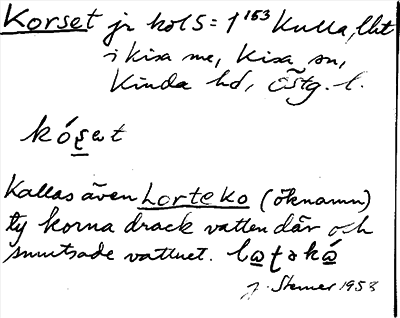 Korset jr kols = 1¹⁵³ Kulla, llit
i kisa sn, Kisa sn,
Kinda hd, Östg. l.
kósət
Kallas även Lorteko (öknamn)
ty korna drack vatten där och
smutsade vattnet.
J. Stenner 1953